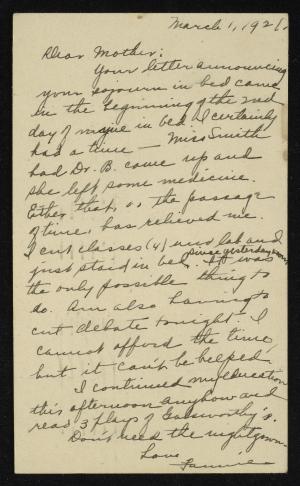 March 1, 1921.
Dear Mother:
Your letter announcing
your sojourn in bed came
in the beginning of the 2nd
day of mine in bed. I certainly
had a time — Miss Smith
had Dr. B. come up and
she left some medicine.
Either that, or the passage
of time, has relieved me.
I cut classes (4) and lab and
just staid in bed, since yesterday
It was
the only possible thing to
do. Am also having to
cut debate tonight. I
cannot afford the time
but it can't be helped.
I continued my education
this afternoon anyhow and
read 3 plays of Galsworthy's.
Don't need the nightgown.
Love